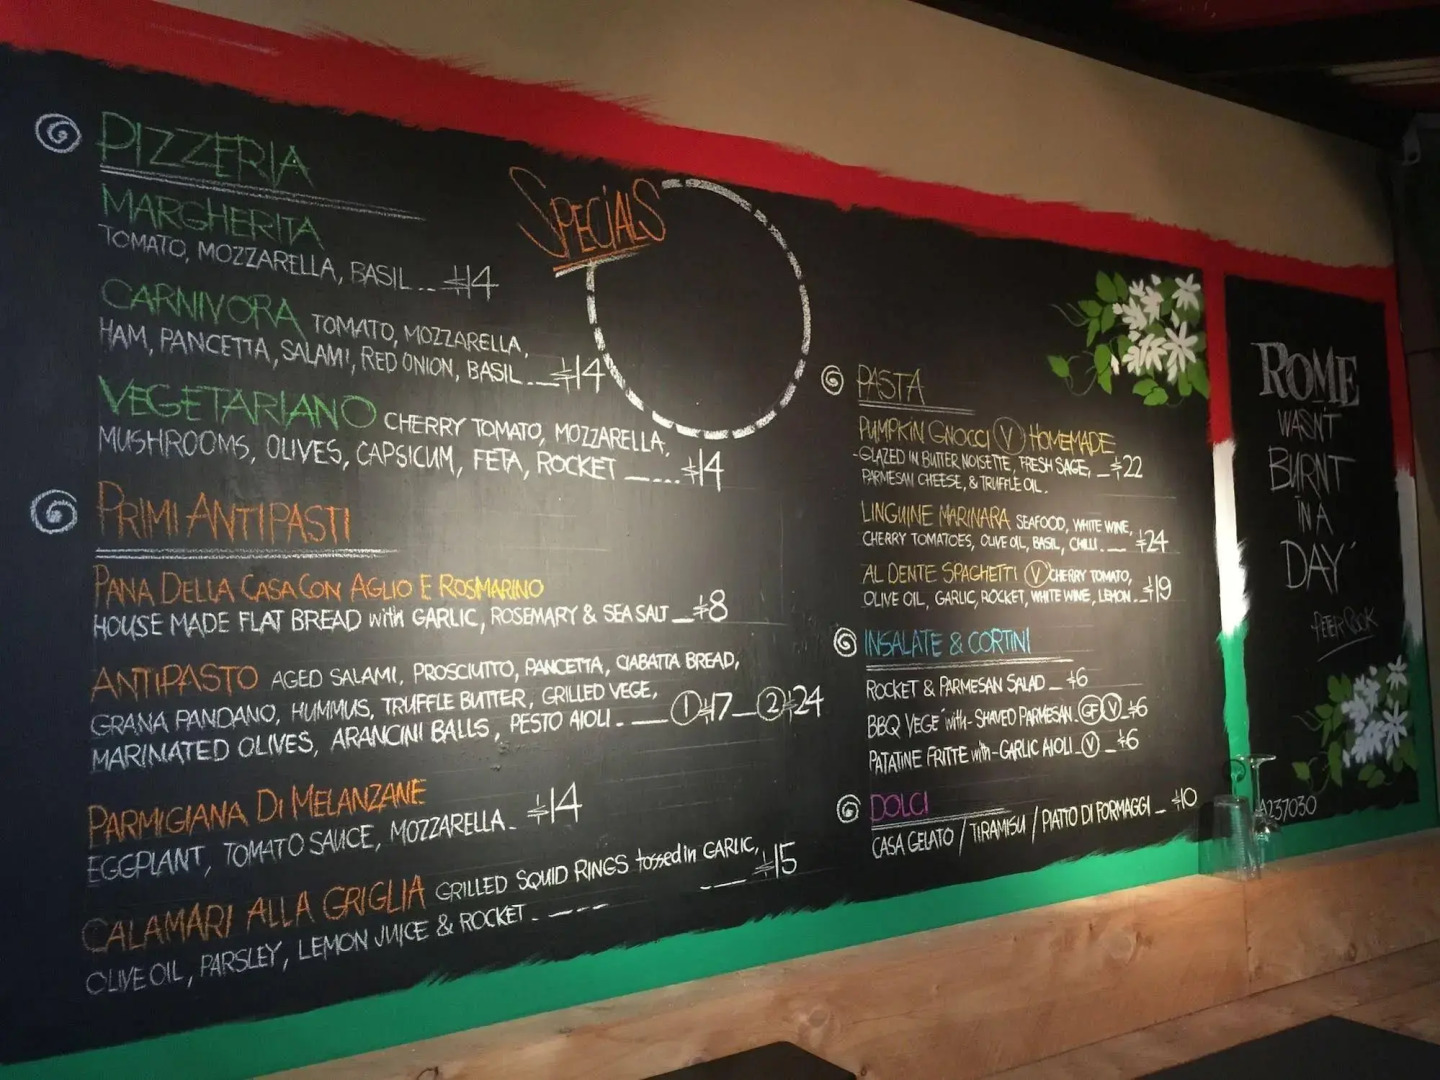 PIZZERIA
MARGHERITA
TOMATO, MOZZARELLA, BASIL... $14
CARNIVORA TOMATO, MOZZARELLA,
HAM, PANCETTA, SALAMI, RED ONION, BASIL... $14
VEGETARIANO CHERRY TOMATO, MOZZARELLA,
MUSHROOMS, OLIVES, CAPSICUM, FETA, ROCKET ..... $14
PRIMI ANTIPASTI
PANA DELLA CASA CON AGLIO E ROSMARINO
HOUSE MADE FLAT BREAD with GARLIC, ROSEMARY & SEA SALT _ $8
ANTIPASTO AGED SALAMI, PROSCIUTTO, PANCETTA, CIABATTA BREAD,
GRANA PANDANO, HUMMUS, TRUFFLE BUTTER, GRILLED VEGE,
MARINATED OLIVES, ARANCINI BALLS, PESTO AIOLI.__ 1 $17 _ 2 $24
PARMIGIANA DI MELANZANE
EGGPLANT, TOMATO SAUCE, MOZZARELLA. $14
CALAMARI ALLA GRIGLIA GRILLED SQUID RINGS tossed in GARLIC,
OLIVE OIL, PARSLEY, LEMON JUICE & ROCKET .---- __ $15
SPECiALS
PASTA
PUMPKIN GNOCCI V HOMEMADE
-GLAZED IN BUTTER NOISETTE, FRESH SAGE, _ $22
PARMESAN CHEESE, & TRUFFLE OIL.
LINGUINE MARINARA SEAFOOD, WHITE WINE,
CHERRY TOMATOES, OLIVE OIL, BASIL, CHILLI.__ $24
AL DENTE SPAGHETTI V CHERRY TOMATO,
OLIVE OIL, GARLIC, ROCKET, WHITE WINE, LEMON.. $19
INSALATE & CORTINI
ROCKET & PARMESAN SALAD _ $6
BBQ VEGE with - SHAVED PARMESAN. GF V _ $6
PATATINE FRITTE with - GARLIC AIOLI _ V _ $6
DOLCI
CASA GELATO / TIRAMISU / PIATTO DI FORMAGGI _ $10
ROME
WASN'T
BURNT
iN A
DAY'
A237030